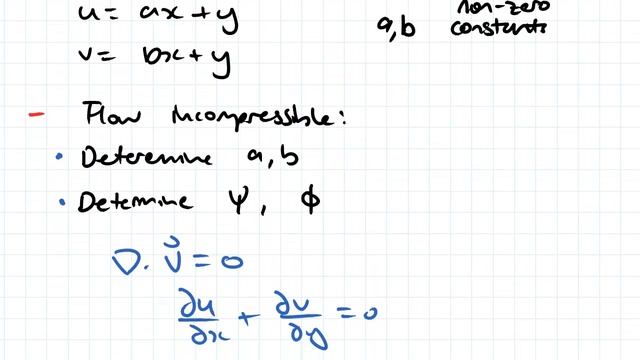 u = ax + y
a, b non-zero constants
v = bx + y
- Flow incompressible:
• Deteremine a, b
• Detemine ψ, ϕ
∇. V = 0
∂u/∂x + ∂v/∂y = 0